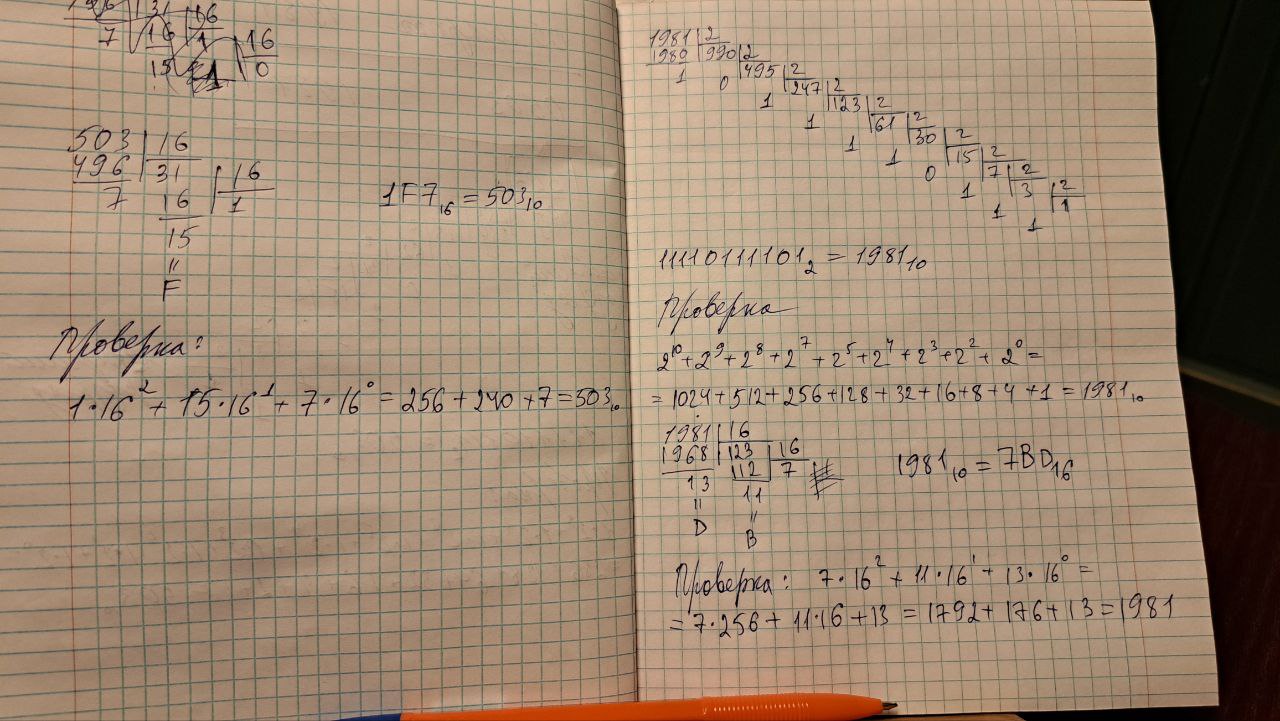 496 31 16
7 16 1 16
15 1 0
503 16
496 31 16
7 16 1
15
"
F
1F7₁₆ = 503₁₀
Проверка:
1·16² + 15·16¹ + 7·16⁰ = 256 + 240 + 7 = 503₁₀
1981 2
1980 990 2
1 0 495 2
1 247 2
1 123 2
1 61 2
1 30 2
0 15 2
1 7 2
1 3 2
1 1
11110111101₂ = 1981₁₀
Проверка
2¹⁰ + 2⁹ + 2⁸ + 2⁷ + 2⁵ + 2⁴ + 2³ + 2² + 2⁰ =
= 1024 + 512 + 256 + 128 + 32 + 16 + 8 + 4 + 1 = 1981₁₀
1981 16
1968 123 16
13 112 7
" 11
D "
B
1981₁₀ = 7BD₁₆
Проверка: 7·16² + 11·16¹ + 13·16⁰ =
= 7·256 + 11·16 + 13 = 1792 + 176 + 13 = 1981